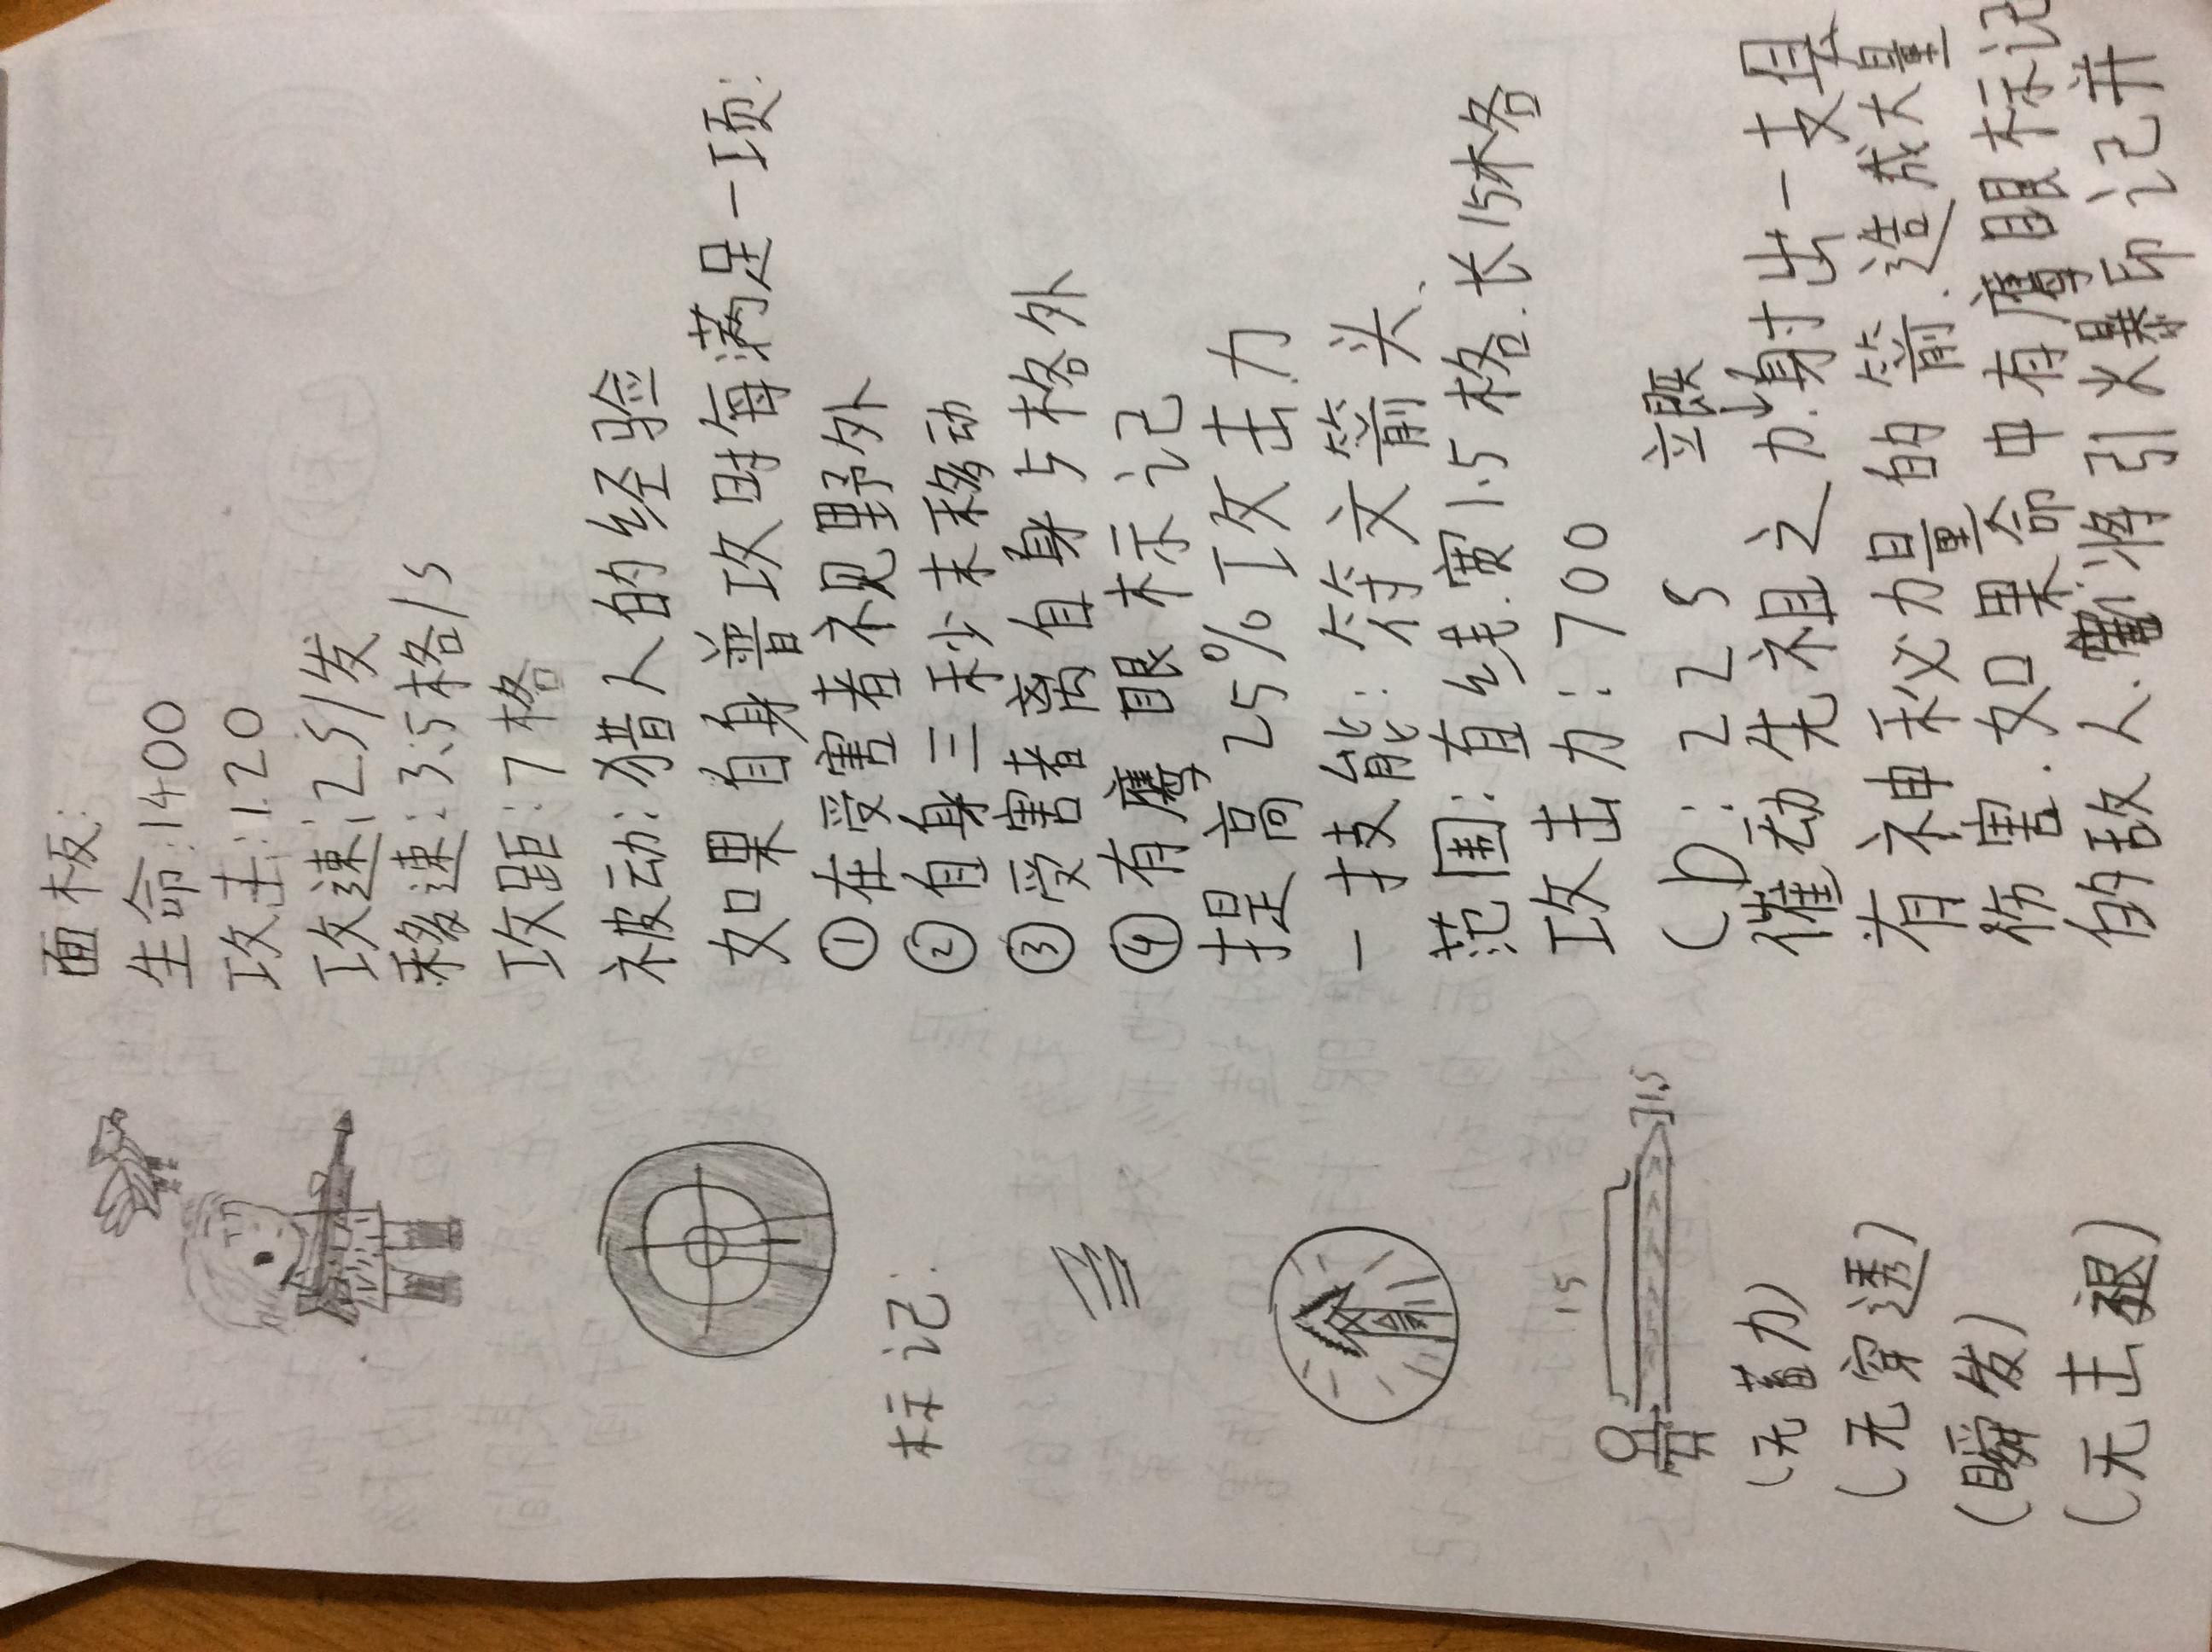 面板:
生命:1400
攻击:120
攻速:2.5/发
移速:3.5格/s
攻距:7格
被动:猎人的经验
如果自身普攻时每满足一项:
①在受害者不见野外
②自身三秒未移动
③受害者离自身5格外
④有鹰眼标记
提高25%攻击力
标记:
一技能:符文箭头.
范围:直线.宽1.5格.长15格
攻击力:700
CD:22s
立即
催动先祖之力.射出一支具
有神秘力量的箭.造成大量
伤害.如果命中有鹰眼标记
的敌人.将引爆印记并
15
1.5
(无蓄力)
(无穿透)
(瞬发)
(无击退)